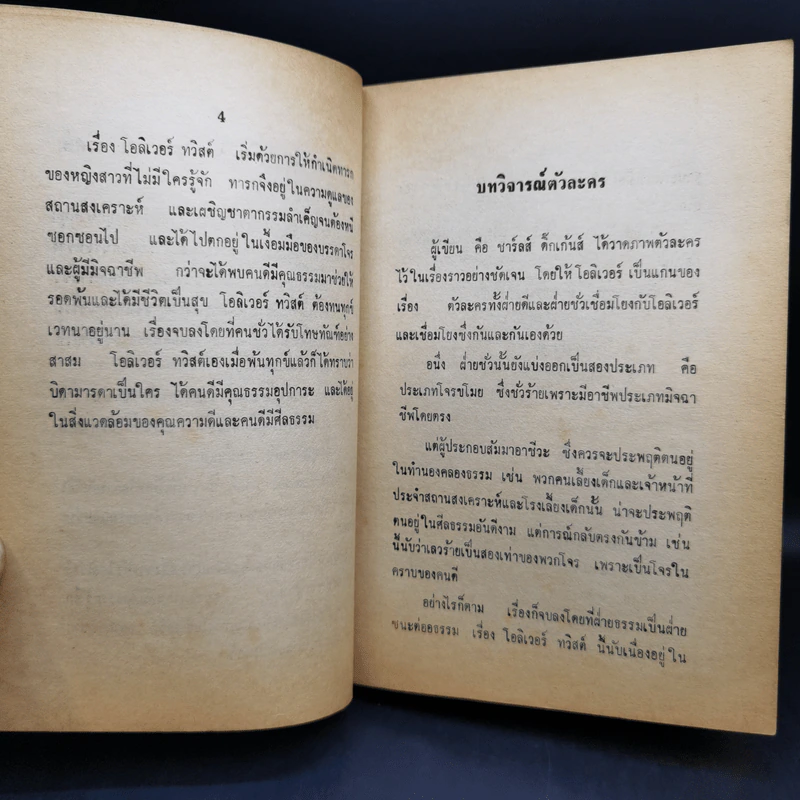 4
เรื่อง โอลิเวอร์ ทวิสต์ เริ่มด้วยการให้กำเนิดทารก
ของหญิงสาวที่ไม่มีใครรู้จัก ทารกจึงอยู่ในความดูแลของ
สถานสงเคราะห์ และเผชิญชาตากรรมลำเค็ญจนต้องหนี
ซอกซอนไป และได้ไปตกอยู่ในเงื้อมมือของบรรดาโจร
และผู้มีมิจฉาชีพ กว่าจะได้พบคนดีมีคุณธรรมมาช่วยให้
รอดพ้นและได้มีชีวิตเป็นสุข โอลิเวอร์ ทวิสต์ ต้องทนทุกข์
เวทนาอยู่นาน เรื่องจบลงโดยที่คนชั่วได้รับโทษทัณฑ์อย่าง
สาสม โอลิเวอร์ ทวิสต์เองเมื่อพ้นทุกข์แล้วก็ได้ทราบว่า
บิดามารดาเป็นใคร ได้คนดีมีคุณธรรมอุปการะ และได้อยู่
ในสิ่งแวดล้อมของคุณความดีและคนดีมีศีลธรรม
บทวิจารณ์ตัวละคร
ผู้เขียน คือ ชาร์ลส์ ดิ๊กเก้นส์ ได้วาดภาพตัวละคร
ไว้ในเรื่องราวอย่างชัดเจน โดยให้ โอลิเวอร์ เป็นแกนของ
เรื่อง ตัวละครทั้งฝ่ายดีและฝ่ายชั่วเชื่อมโยงกับโอลิเวอร์
และเชื่อมโยงซึ่งกันและกันเองด้วย
อนึ่ง ฝ่ายชั่วนั้นยังแบ่งออกเป็นสองประเภท คือ
ประเภทโจรขโมย ซึ่งชั่วร้ายเพราะมีอาชีพประเภทมิจฉา
ชีพโดยตรง
แต่ผู้ประกอบสัมมาอาชีวะ ซึ่งควรจะประพฤติตนอยู่
ในทำนองคลองธรรม เช่น พวกคนเลี้ยงเด็กและเจ้าหน้าที่
ประจำสถานสงเคราะห์และโรงเลี้ยงเด็กนั้น น่าจะประพฤติ
ตนอยู่ในศีลธรรมอันดีงาม แต่การณ์กลับตรงกันข้าม เช่น
นี้นับว่าเลวร้ายเป็นสองเท่าของพวกโจร เพราะเป็นโจรใน
คราบของคนดี
อย่างไรก็ตาม เรื่องก็จบลงโดยที่ฝ่ายธรรมเป็นฝ่าย
ชนะต่ออธรรม เรื่อง โอลิเวอร์ ทวิสต์ นี้นับเนื่องอยู่ ใน